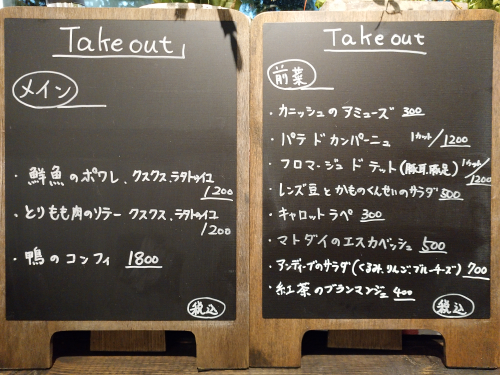 Take out
メイン
・鮮魚のポワレ、クスクス、ラタトゥイユ
1200
・とりもも肉のソテー クスクス、ラタトゥイユ
1200
・鴨のコンフィ 1800
税込
Take out
前菜
・カニッシュのアミューズ 300
・パテ ド カンパーニュ 1カット/1200
・フロマ・ジュ ド テット(豚耳、豚足) 1カット/1200
・レンズ豆とかものくんせいのサラダ 800
・キャロットラペ 300
・マトダイのエスカベッシュ 500
・アンディーブのサラダ(くるみ、りんご、ブルーチーズ) 700
・紅茶のブランマンジェ 400
税込